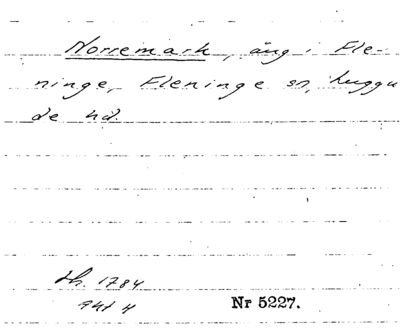 Norremark, äng i Fle-
ninge, Fleninge sn, Luggu
de hd.
Lh. 1784
akt 4
Nr 5227.